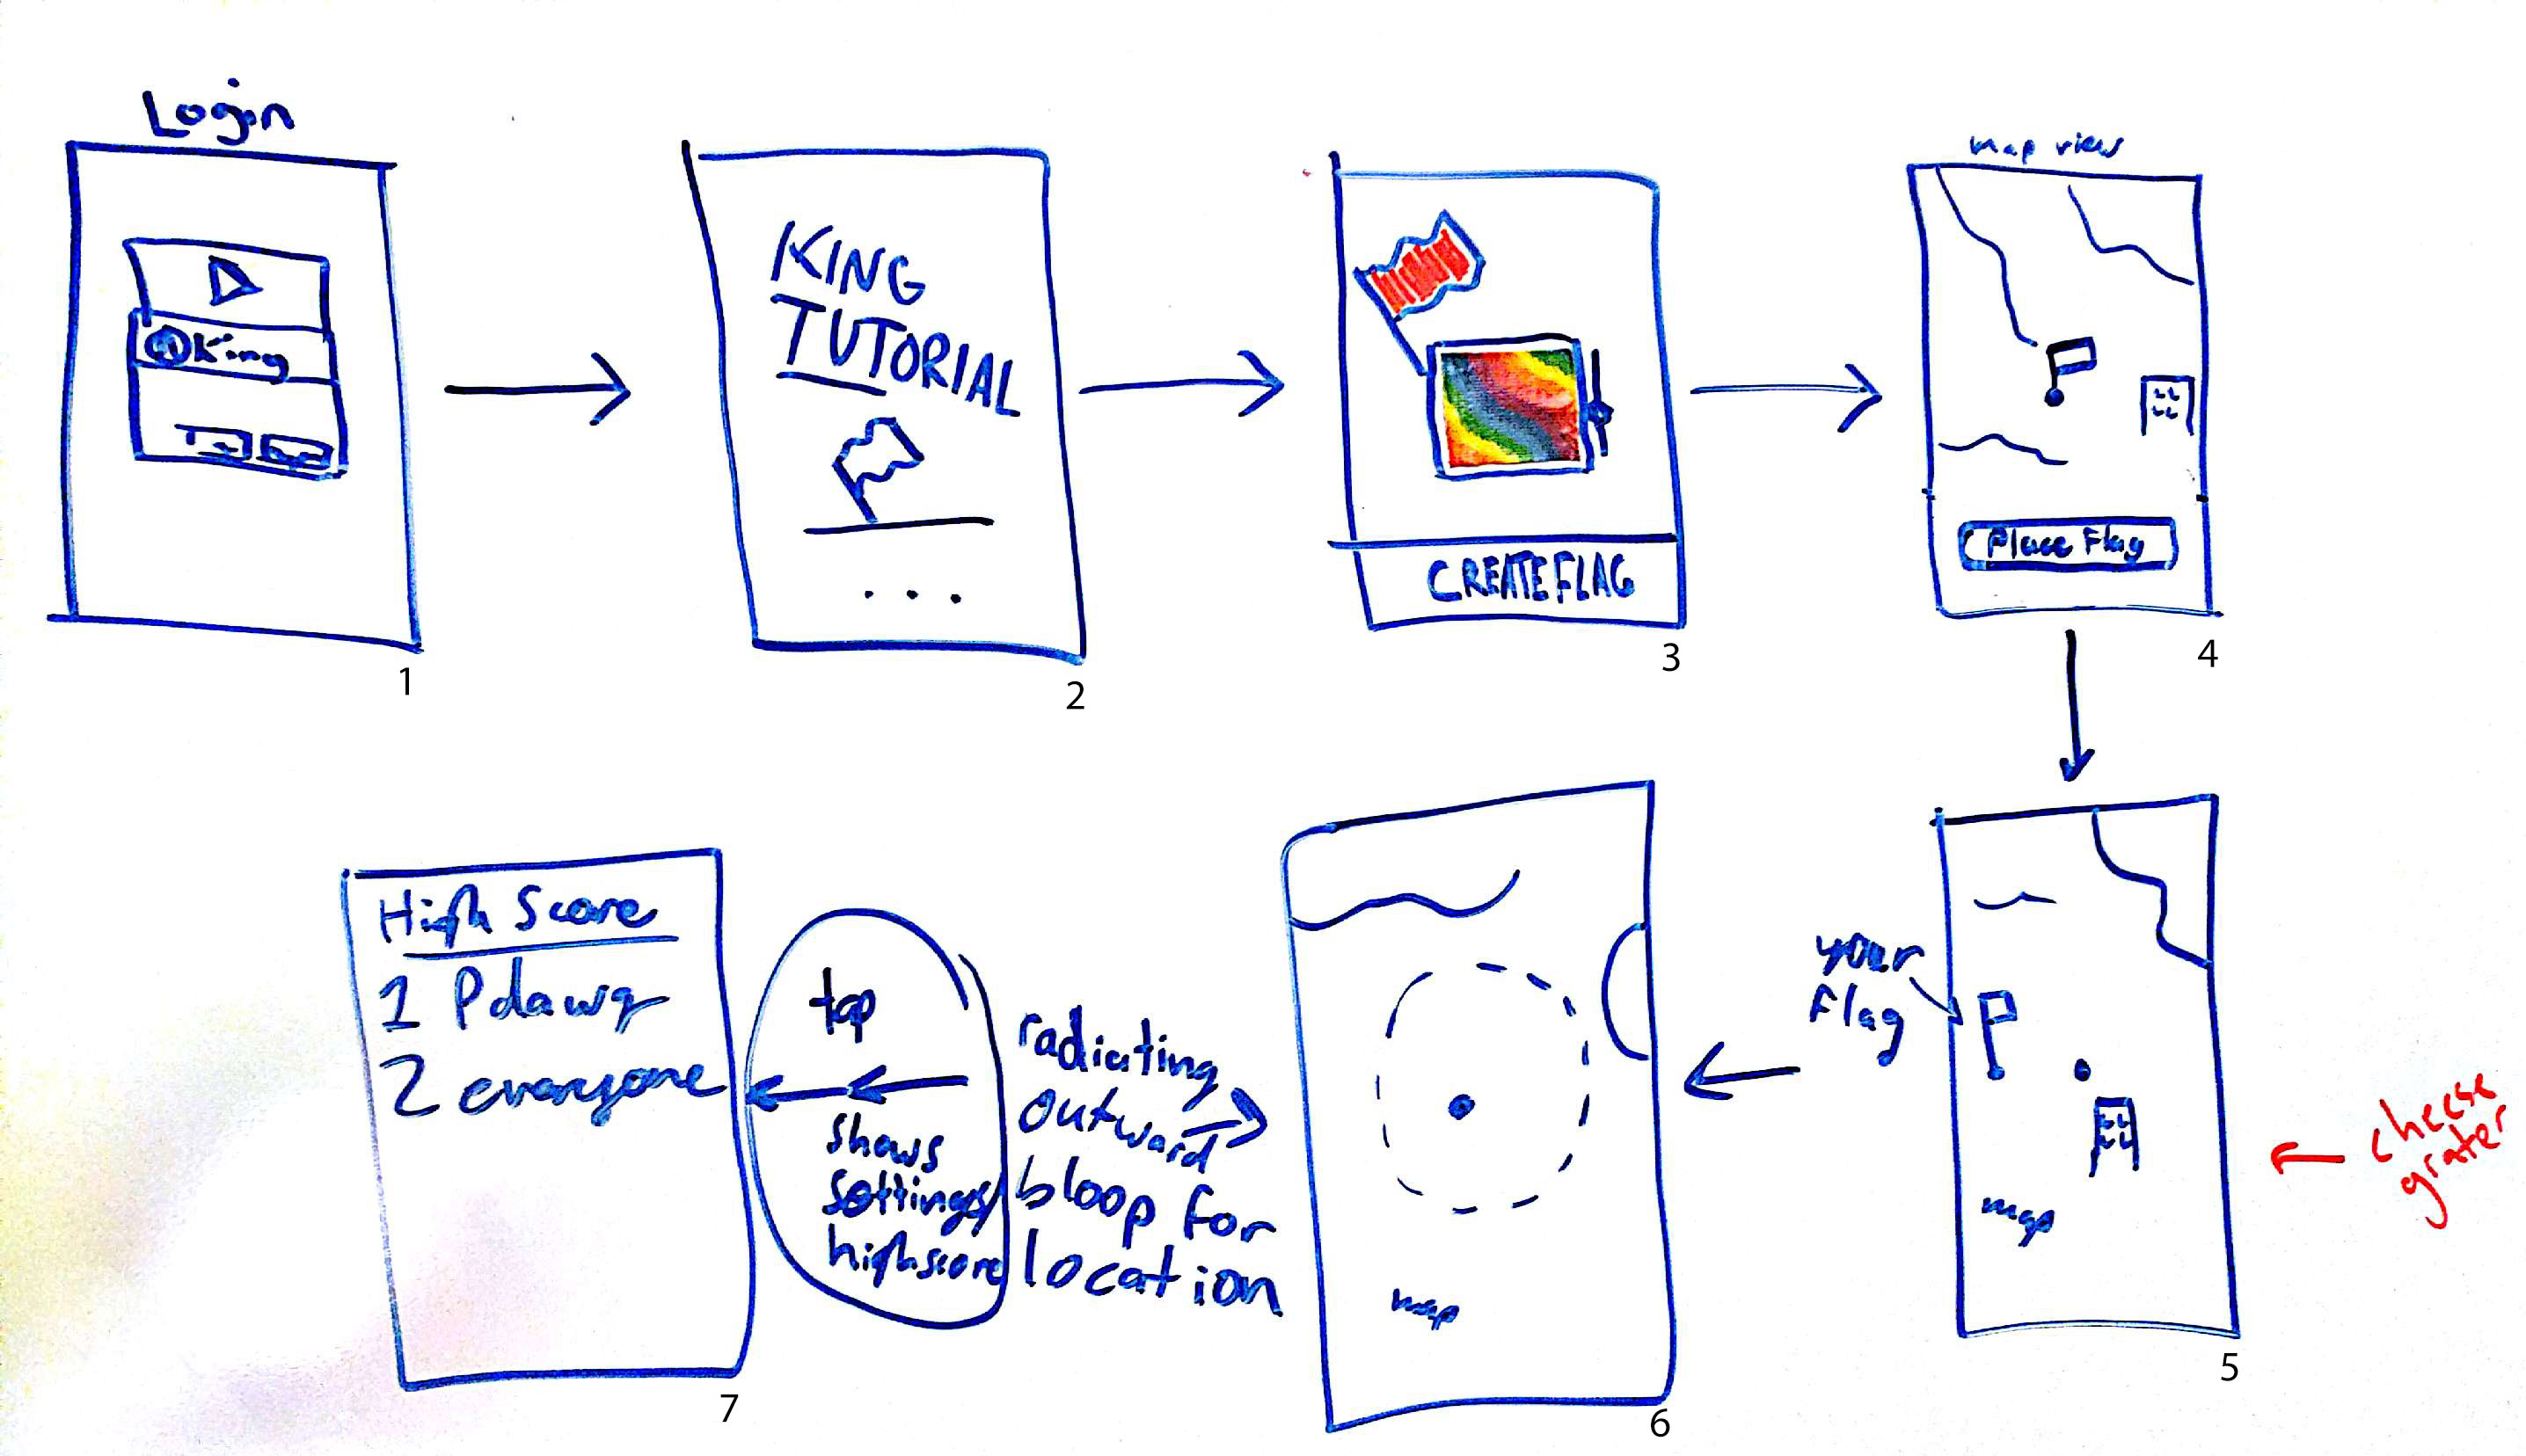 Login
@King
1
KING
TUTORIAL
...
2
CREATE FLAG
3
map view
Place Flag
4
your
flag
map
5
cheese
grater
map
6
radiating
outward
bloop for
location
tap
shows
settings/
highscore
High Score
1 Pdawg
2 everyone
7